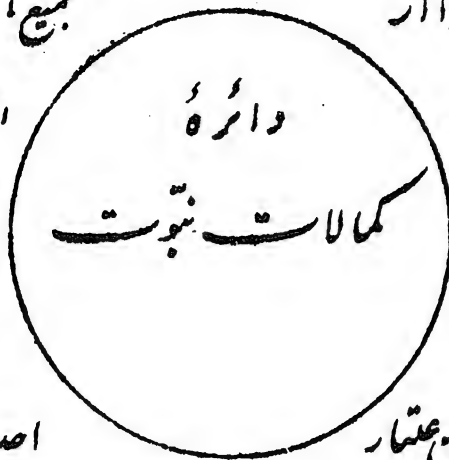 دائرۂ
کمالات نبّوت
جمیع
اعتبار